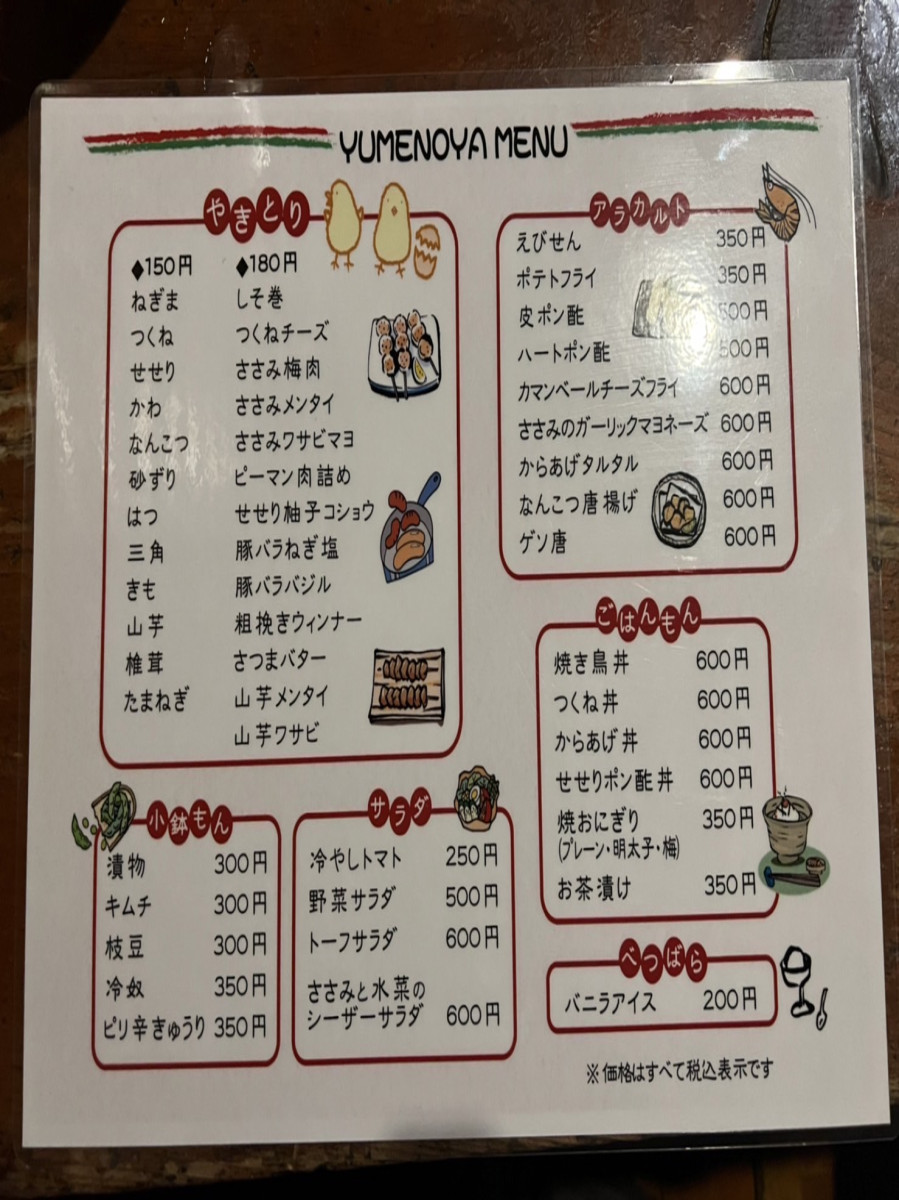 YUMENOYA MENU
やきとり
◆150円
ねぎま
つくね
せせり
かわ
なんこつ
砂ずり
はつ
三角
きも
山芋
椎茸
たまねぎ
◆180円
しそ巻
つくねチーズ
ささみ梅肉
ささみメンタイ
ささみワサビマヨ
ピーマン肉詰め
せせり柚子コショウ
豚バラねぎ塩
豚バラバジル
粗挽きウィンナー
さつまバター
山芋メンタイ
山芋ワサビ
アラカルト
えびせん 350円
ポテトフライ 350円
皮ポン酢 500円
ハートポン酢 500円
カマンベールチーズフライ 600円
ささみのガーリックマヨネーズ 600円
からあげタルタル 600円
なんこつ唐揚げ 600円
ゲソ唐 600円
ごはんもん
焼き鳥丼 600円
つくね丼 600円
からあげ丼 600円
せせりポン酢丼 600円
焼おにぎり 350円
(プレーン・明太子・梅)
お茶漬け 350円
小鉢もん
漬物 300円
キムチ 300円
枝豆 300円
冷奴 350円
ピリ辛きゅうり 350円
サラダ
冷やしトマト 250円
野菜サラダ 500円
トーフサラダ 600円
ささみと水菜の
シーザーサラダ 600円
べつばら
バニラアイス 200円
※価格はすべて税込表示です